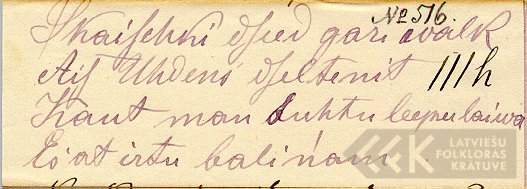 № 516.
Skaischki dsied gari walk
Ais Uhdens dseltenit IIIh
Kaut man buhtu leepu laiwa
Es at irtu baliņam
LATVIEŠU
FOLKLORAS
KRĀTUVE